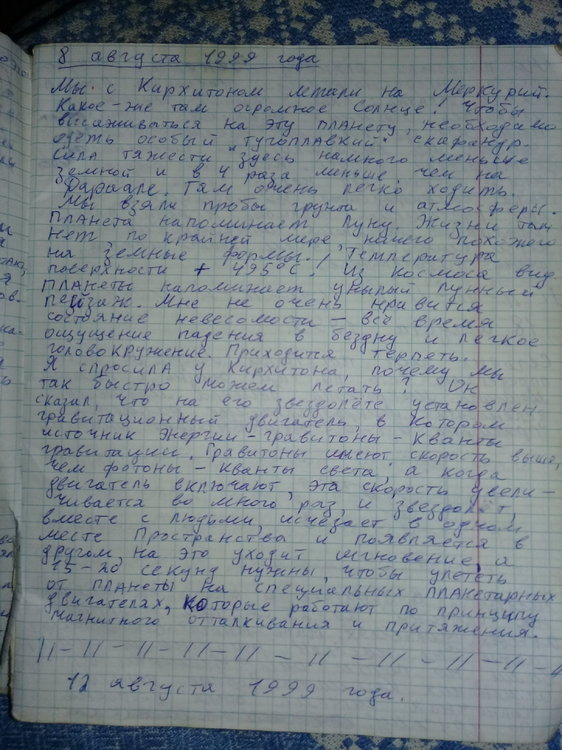 8 августа 1999 года
Мы с Кирхитоном летали на Меркурий.
Какое-же там огромное Солнце! Чтобы
высаживаться на эту планету, необходимо
одеть особый "тугоплавкий" скафандр.
Сила тяжести здесь намного меньше
земной и в 4 раза меньше, чем на
Там очень легко ходить.
Мы взяли пробы грунта и атмосферы.
Планета напоминает Луну. Жизни там
нет, по крайней мере, ничего похожего
на земные формы. Температура
поверхности + 495°С. Из космоса вид
планеты напоминает унылый лунный
пейзаж. Мне не очень нравится
состояние невесомости – всё время
ощущение падения в бездну и легкое
головокружение. Приходится терпеть.
Я спросила у Кирхитона, почему мы
так быстро можем летать? Он
сказал, что на его звездолёте установлен
гравитационный двигатель, в котором
источник энергии – гравитоны – кванты
гравитации. Гравитоны имеют скорость выше,
чем фотоны – кванты света, а когда
двигатель включают, эта скорость увели-
чивается во много раз, и звездолёт,
вместе с людьми, исчезает в одном
месте Пространства и появляется в
другом, на это уходит мгновение, а
15-20 секунд нужны, чтобы улететь
от планеты на специальных планетарных
двигателях, которые работают по принципу
магнитного отталкивания и притяжения.
12 августа 1999 года.